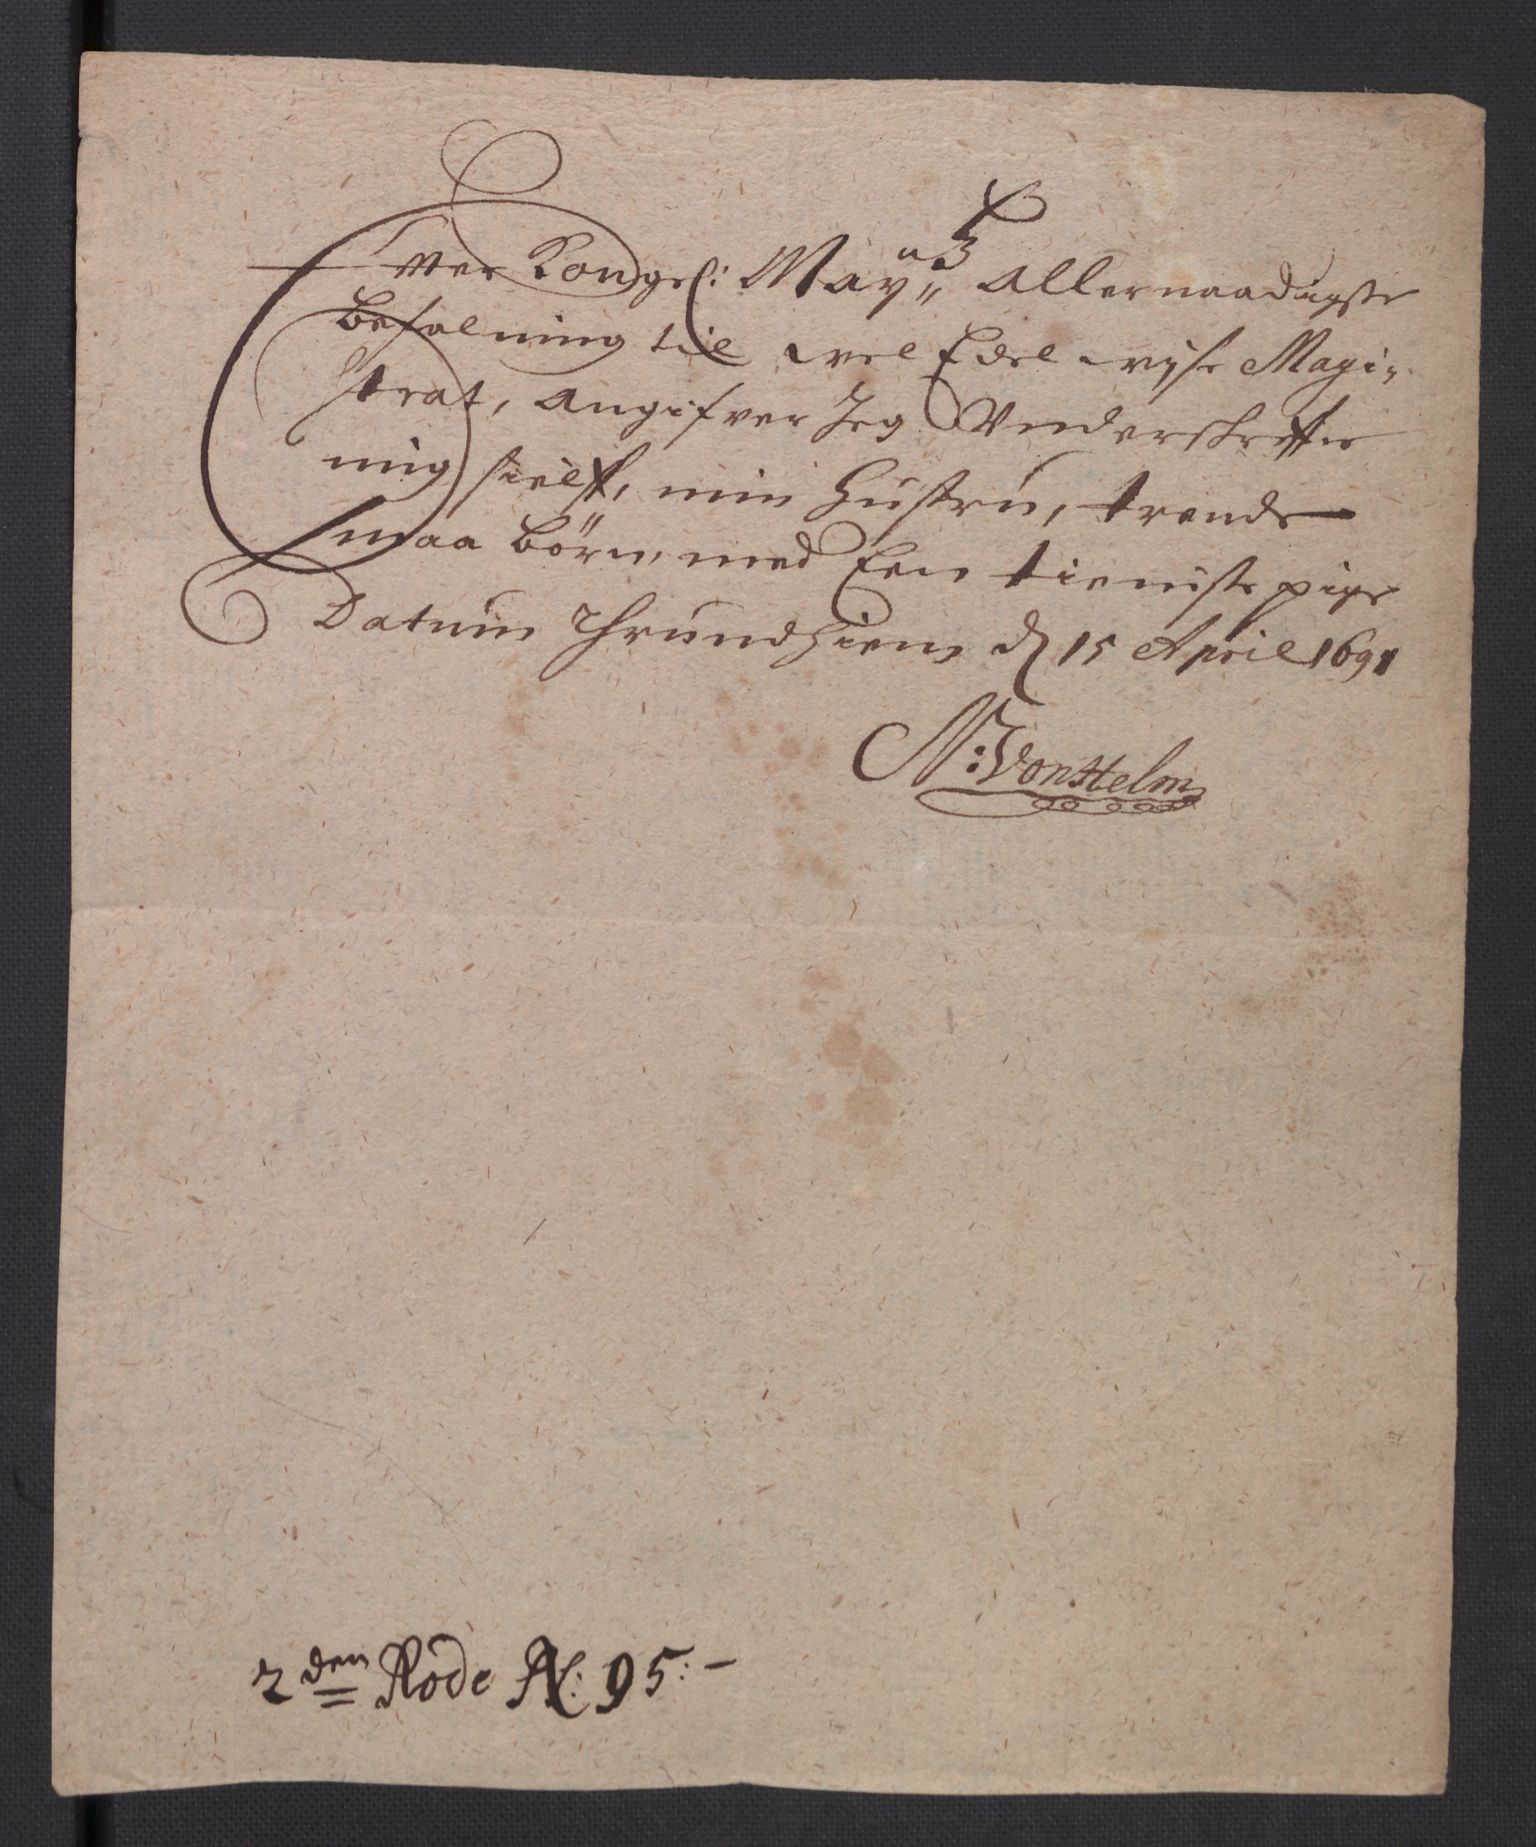 Efter Kongel: May:tz Allernaadigste
Befalning til wel Edel wijse Magi-
strat, angifver Jeg Underskrefne
mig sielf, min Hustru, trende
smaa börn, med Een tieniste pige
Datum Thrundhiem d 15 April 1691
N: Von Helm
2den Rode N: 95:-